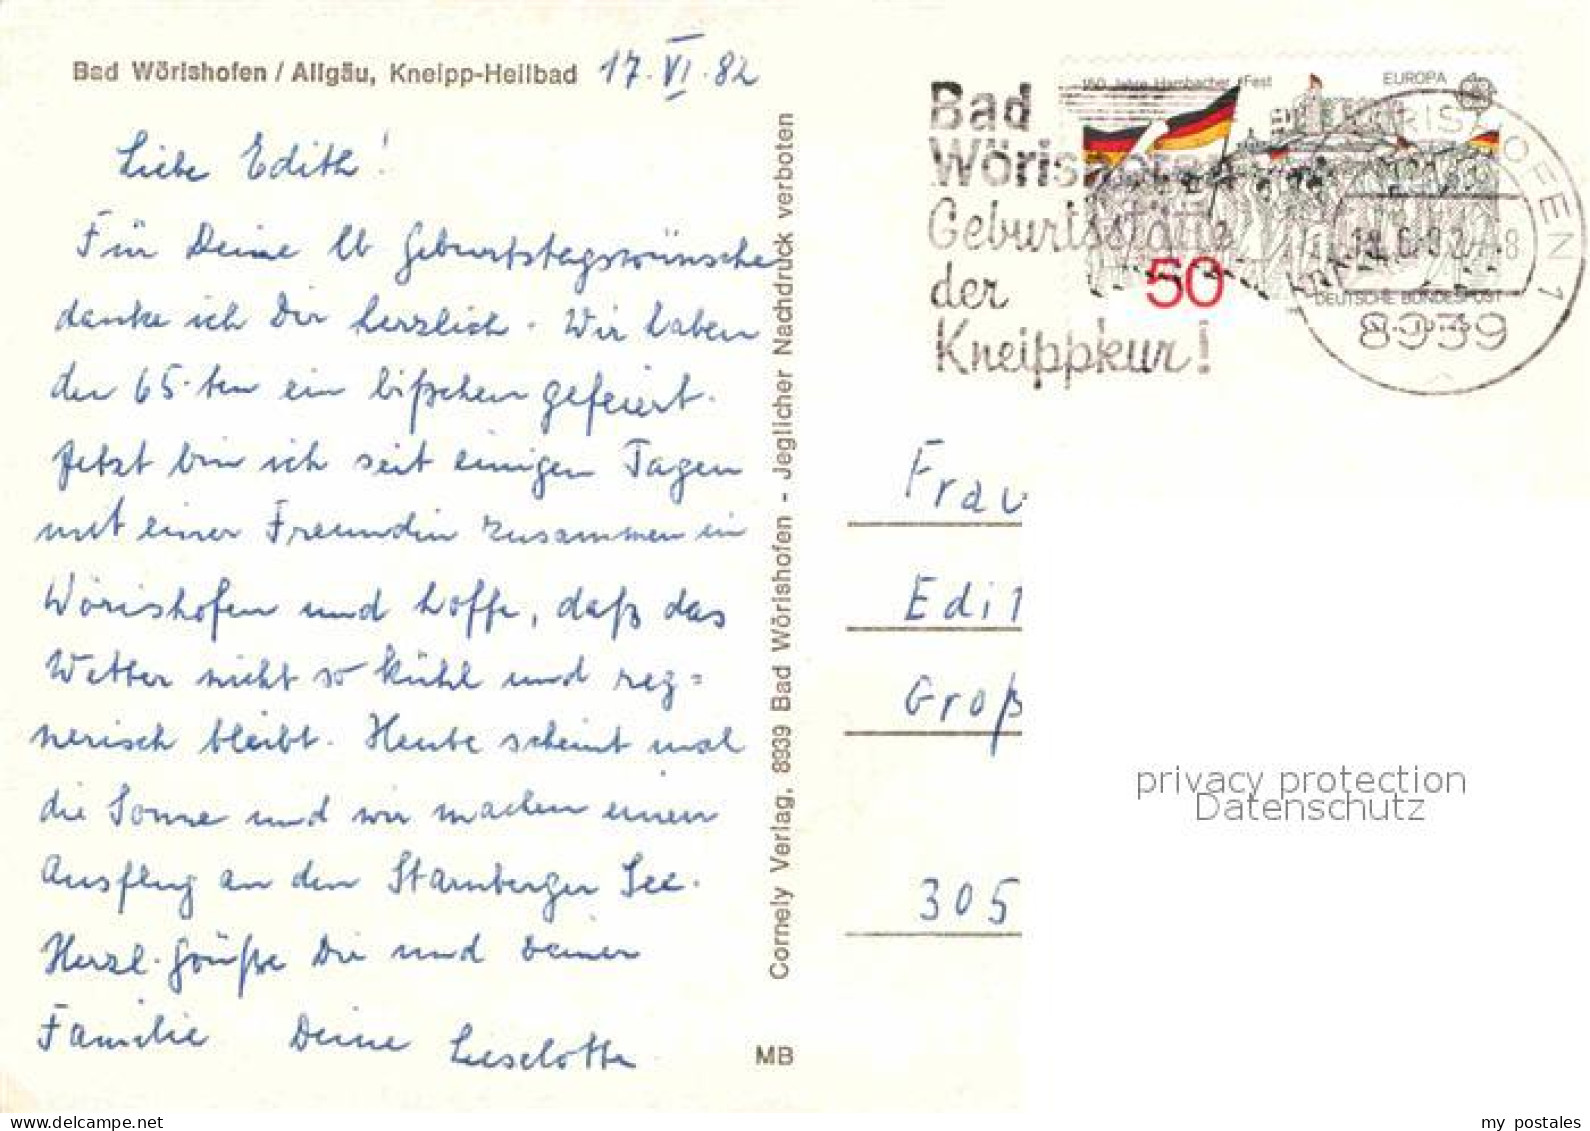 Bad Wörishofen / Allgäu, Kneipp-Heilbad 17. VI. 82
Liebe Edith!
Für Deine lb Geburtstagswünsche
danke ich Dir herzlich. Wir haben
den 65-ten ein bißchen gefeiert.
Jetzt bin ich seit einigen Tagen
mit einer Freundin zusammen in
Wörishofen und hoffe, daß das
Wetter nicht so kühl und reg=
nerisch bleibt. Heute scheint mal
die Sonne und wir machen einen
Ausflug an den Starnberger See.
Herzl. Grüße Dir und Deiner
Familie Deine Lieselotte
Cornely Verlag, 8939 Bad Wörishofen - Jeglicher Nachdruck verboten
MB
Bad
Wörishofen
Geburtsstätte
der
Kneippkur!
150 Jahre Hambacher Fest
EUROPA
50
DEUTSCHE BUNDESPOST
WÖRISHOFEN 1
8939
Frau
Edit
Groß
305
privacy protection
Datenschutz
my postales